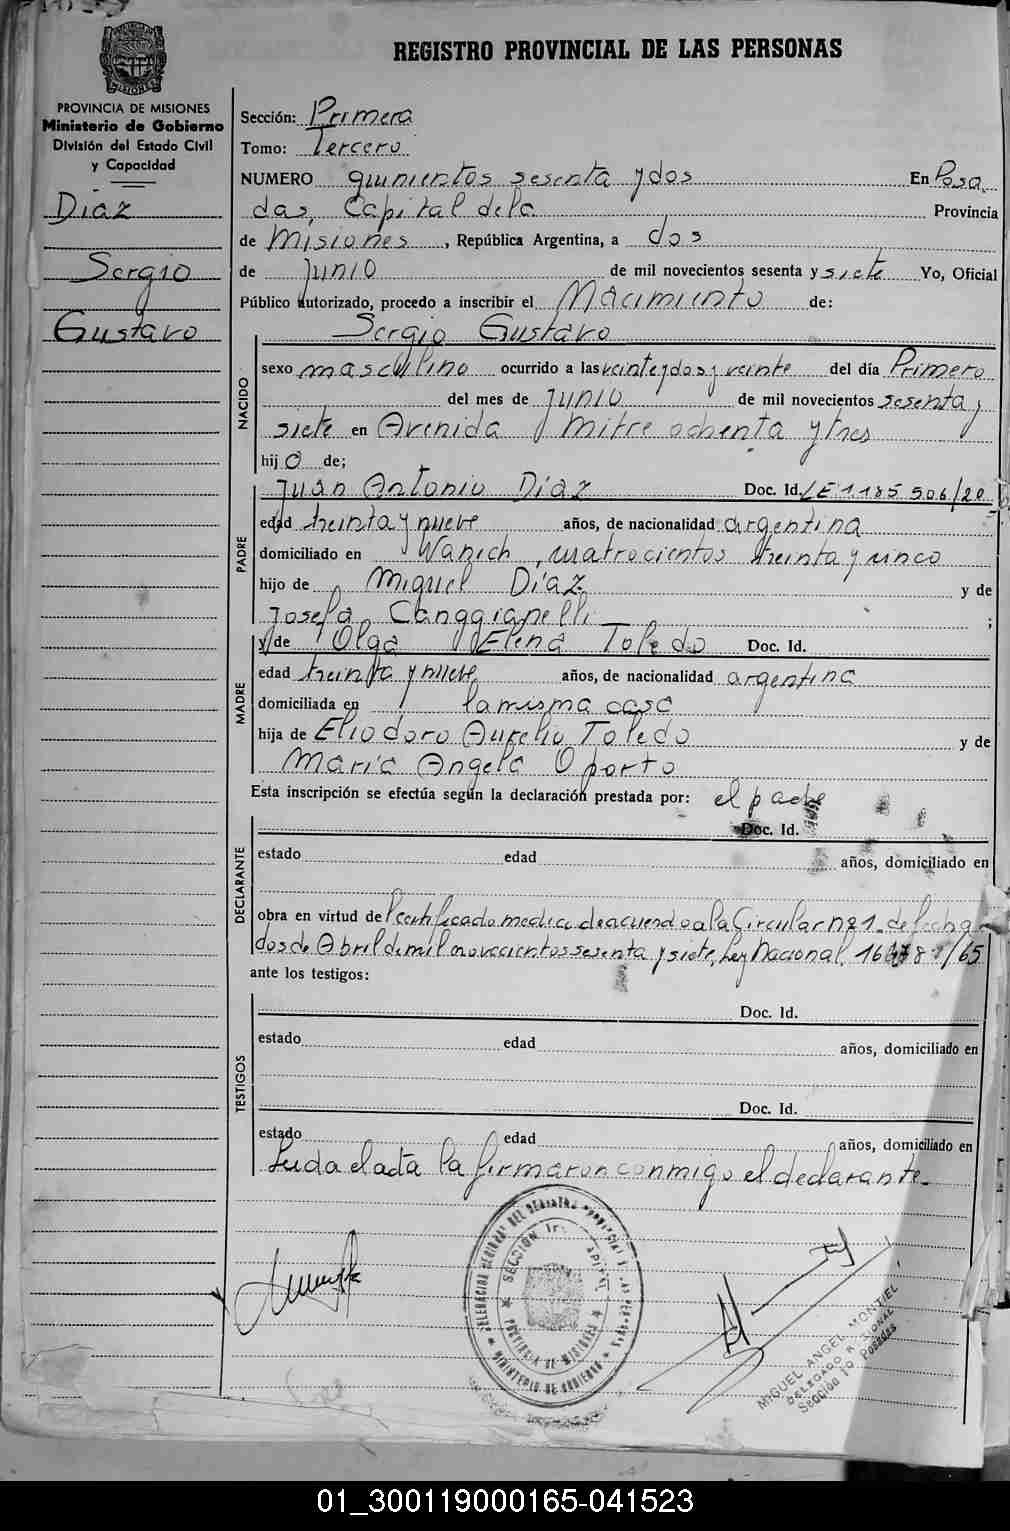 REGISTRO PROVINCIAL DE LAS PERSONAS
PROVINCIA DE MISIONES
Ministerio de Gobierno
División del Estado Civil
y Capacidad
Diaz
Sergio
Gustavo
Sección: Primera
Tomo: Tercero
NUMERO quinientos sesenta y dos En Posa
das, Capital de la Provincia
de Misiones, República Argentina, a dos
de Junio de mil novecientos sesenta y siete Yo, Oficial
Público autorizado, procedo a inscribir el Nacimiento de:
Sergio Gustavo
NACIDO
sexo masculino ocurrido a las veinte y dos y veinte del día Primero
del mes de Junio de mil novecientos sesenta y
siete en Avenida Mitre ochenta y tres
hijo de;
PADRE
Juan Antonio Diaz Doc. Id. LE 1185506/20
edad treinta y nueve años, de nacionalidad argentina
domiciliado en cuatrocientos treinta y cinco
hijo de Miguel Diaz y de
Josefa ;
MADRE
y de Olga Elena Toledo Doc. Id.
edad treinta y nueve años, de nacionalidad argentina
domiciliada en la misma casa
hija de Eliodoro Aurelio Toledo y de
Maria Angela Oporto
Esta inscripción se efectúa según la declaración prestada por: el padre
DECLARANTE
Doc. Id.
estado edad años, domiciliado en
obra en virtud del certificado medico de acuerdo a la Circular nº 1 de fecha
dos de Abril de mil novecientos sesenta y siete, Ley Nacional /65
ante los testigos:
TESTIGOS
Doc. Id.
estado edad años, domiciliado en
Doc. Id.
estado edad años, domiciliado en
Leida el acta la firmaron conmigo el declarante.
PROVINCIA DE MISIONES
MINISTERIO DE GOBIERNO
MIGUEL ANGEL MONTIEL
DELEGADO
Sección 1a Posadas
01_300119000165-041523